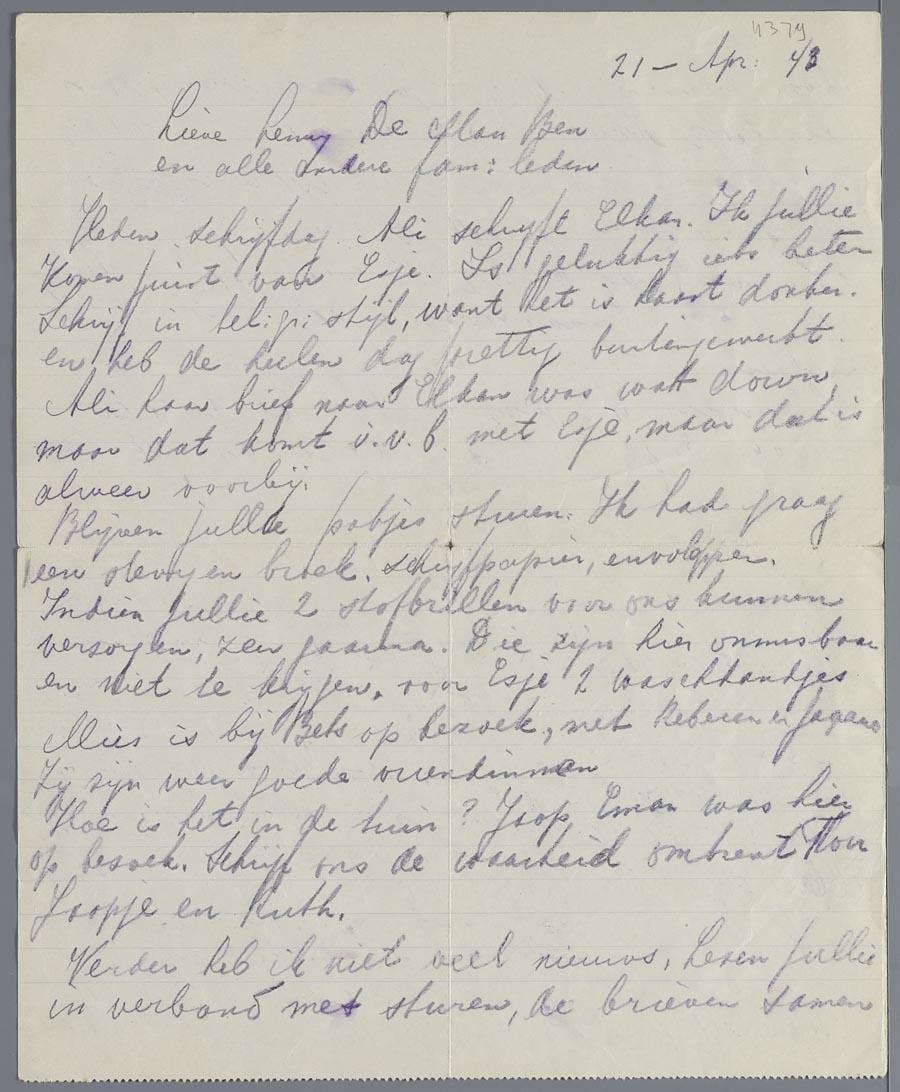 4379
21 – Apr: 43
Lieve Henny De Man Ben
en alle andere fam: leden
Heden schrijfdag. Ali schrijft Elkan. Ik jullie
Komen juist van Esje. Is gelukkig iets beter
Schrijf in telegr: stijl, want het is haast donker.
en heb de heelen dag prettig buitengewerkt.
Ali haar brief naar Elkan was wat down,
maar dat komt i.v.b. met Esje, maar dat is
alweer voorbij.
Blijven jullie pakjes sturen. Ik had graag
een stevigen broek. schrijfpapier, envoloppen.
Indien jullie 2 stofbrillen voor ons kunnen
versorgen, zeer gaarna. Die zijn hier onmisbaar
en niet te krijgen, voor Esje 2 waschhandjes
Mies is bij Bets op bezoek, met Rebecca en
Zij zijn weer goede vriendinnen
Hoe is het in de tuin? Joop Eman was hier
op bezoek. Schrijf ons de waarheid omtrent
Joopje en Ruth.
Verder heb ik niet veel nieuws, Lezen jullie
in verband met sturen, de brieven samen